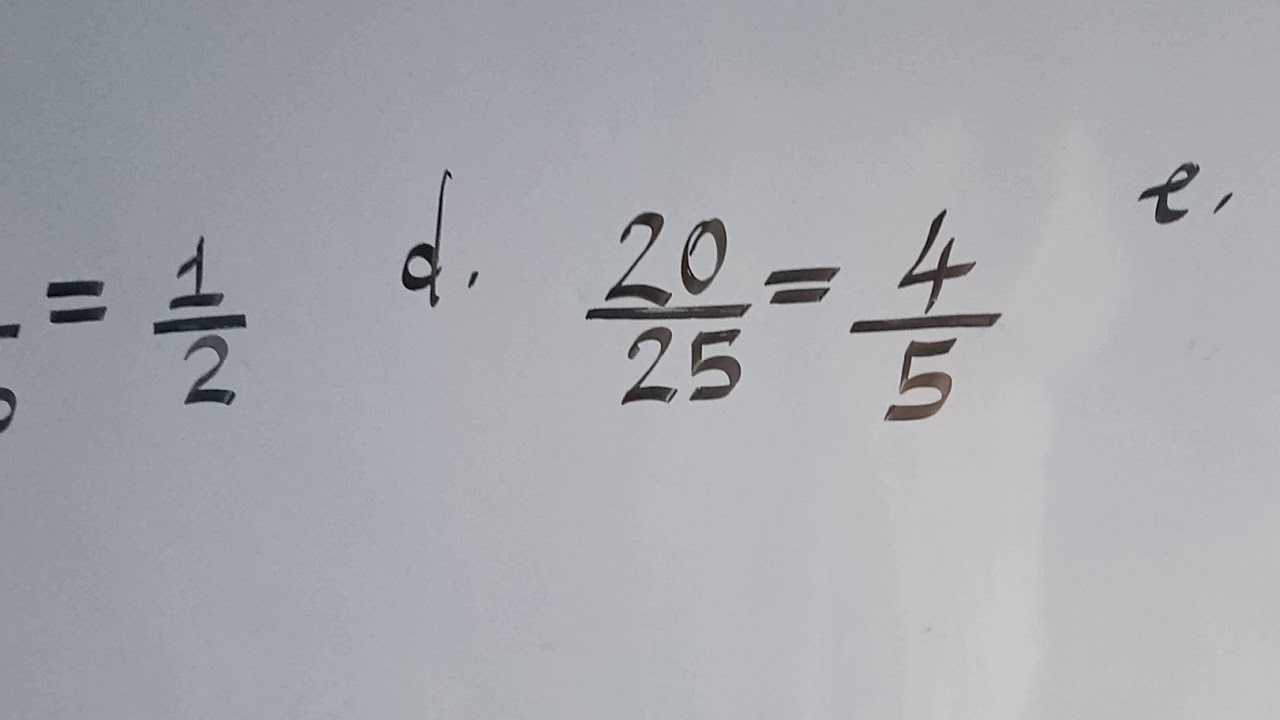 = 1/2 d. 20/25 = 4/5 e.